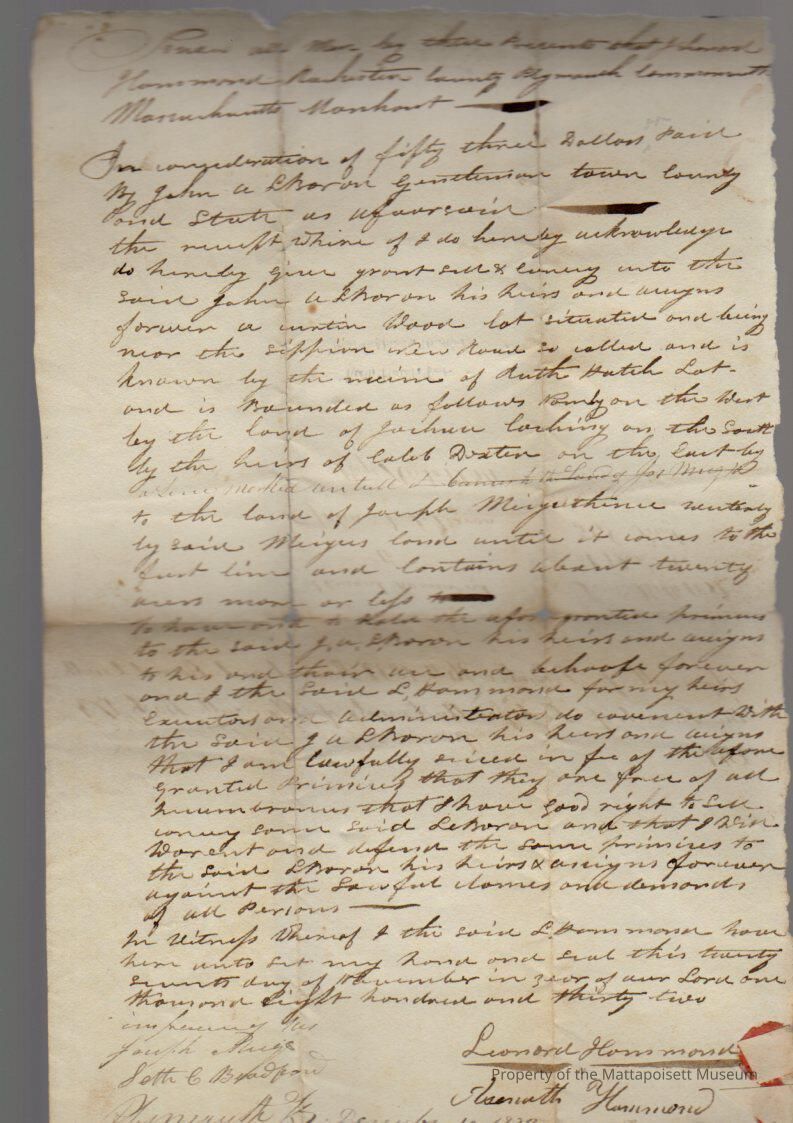 Know all Men by these Presents that I Leonard
Hammond Rochester County Plymouth Commonwealth
Massachusetts Marchant
In consideration of fifty three Dollars Paid
By John a LBaron Gentleman town County
and State as afoarsaid
the receipt Whire of I do hereby acknowledge
do hereby give grant sell & convey unto the
said John a LBaron his heirs and assigns
forever a curtin Wood lot situated and being
near the Sippion New Road so called and is
known by the name of Ruth Hatch Lot
and is Bounded as follows on the West
by the land of Joshua on the South
by the heirs of Caleb Dexter on the East by
a Line marked untill it Comes to the Land of Jos Meigs
to the land of Joseph Meigs thence westerly
by said Meigses land until it comes to the
furst line and contains about twenty
acers more or less
to have and to Hold the afore granted primises
to the said J. a. LBaron his heirs and assigns
to his and thair use and behoofe forever
and I the said L. Hammond for my heirs
Executors and Administrators do covenent With
the said J a LBaron his heirs and asigns
that I am Lawfully seized in fee of the afore
granted Primises that they are free of all
Incumbrances that I have good right to sell
convey same said LeBaron and that I Will
Warent and defend the same primises to
the said LBaron his heirs & assigns forever
against the Lawful clames and demands
of all Persons
In Witness Whereof I the said L. Hammond have
here unto set my hand and seal this twenty
seventh day of November in year of our Lord one
thousand Eight hundred and thirty two
in presence of us
Joseph Meigs
Seth C Bradford
Leonard Hammond
Property of the Mattapoisett Museum
Asenath Hammond
Plymouth Ss. December 1832